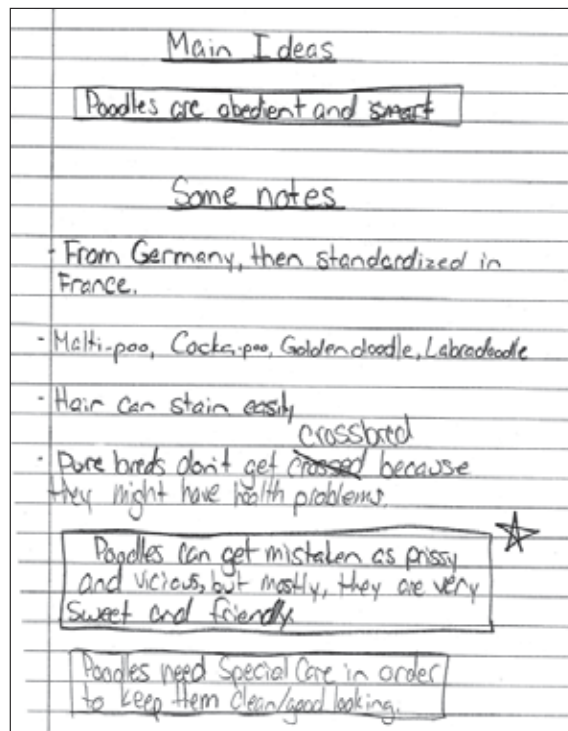 Main Ideas
Poodles are obedient and smart
Some notes
· From Germany, then standardized in
France.
· Malti-poo, Cocka-poo, Goldendoodle, Labradoodle
· Hair can stain easily
crossbred
· Pure breds don't get crossed because
they might have health problems.
Poodles can get mistaken as prissy
and vicious, but mostly, they are very
sweet and friendly.
Poodles need Special Care in order
to keep them clean/good looking.